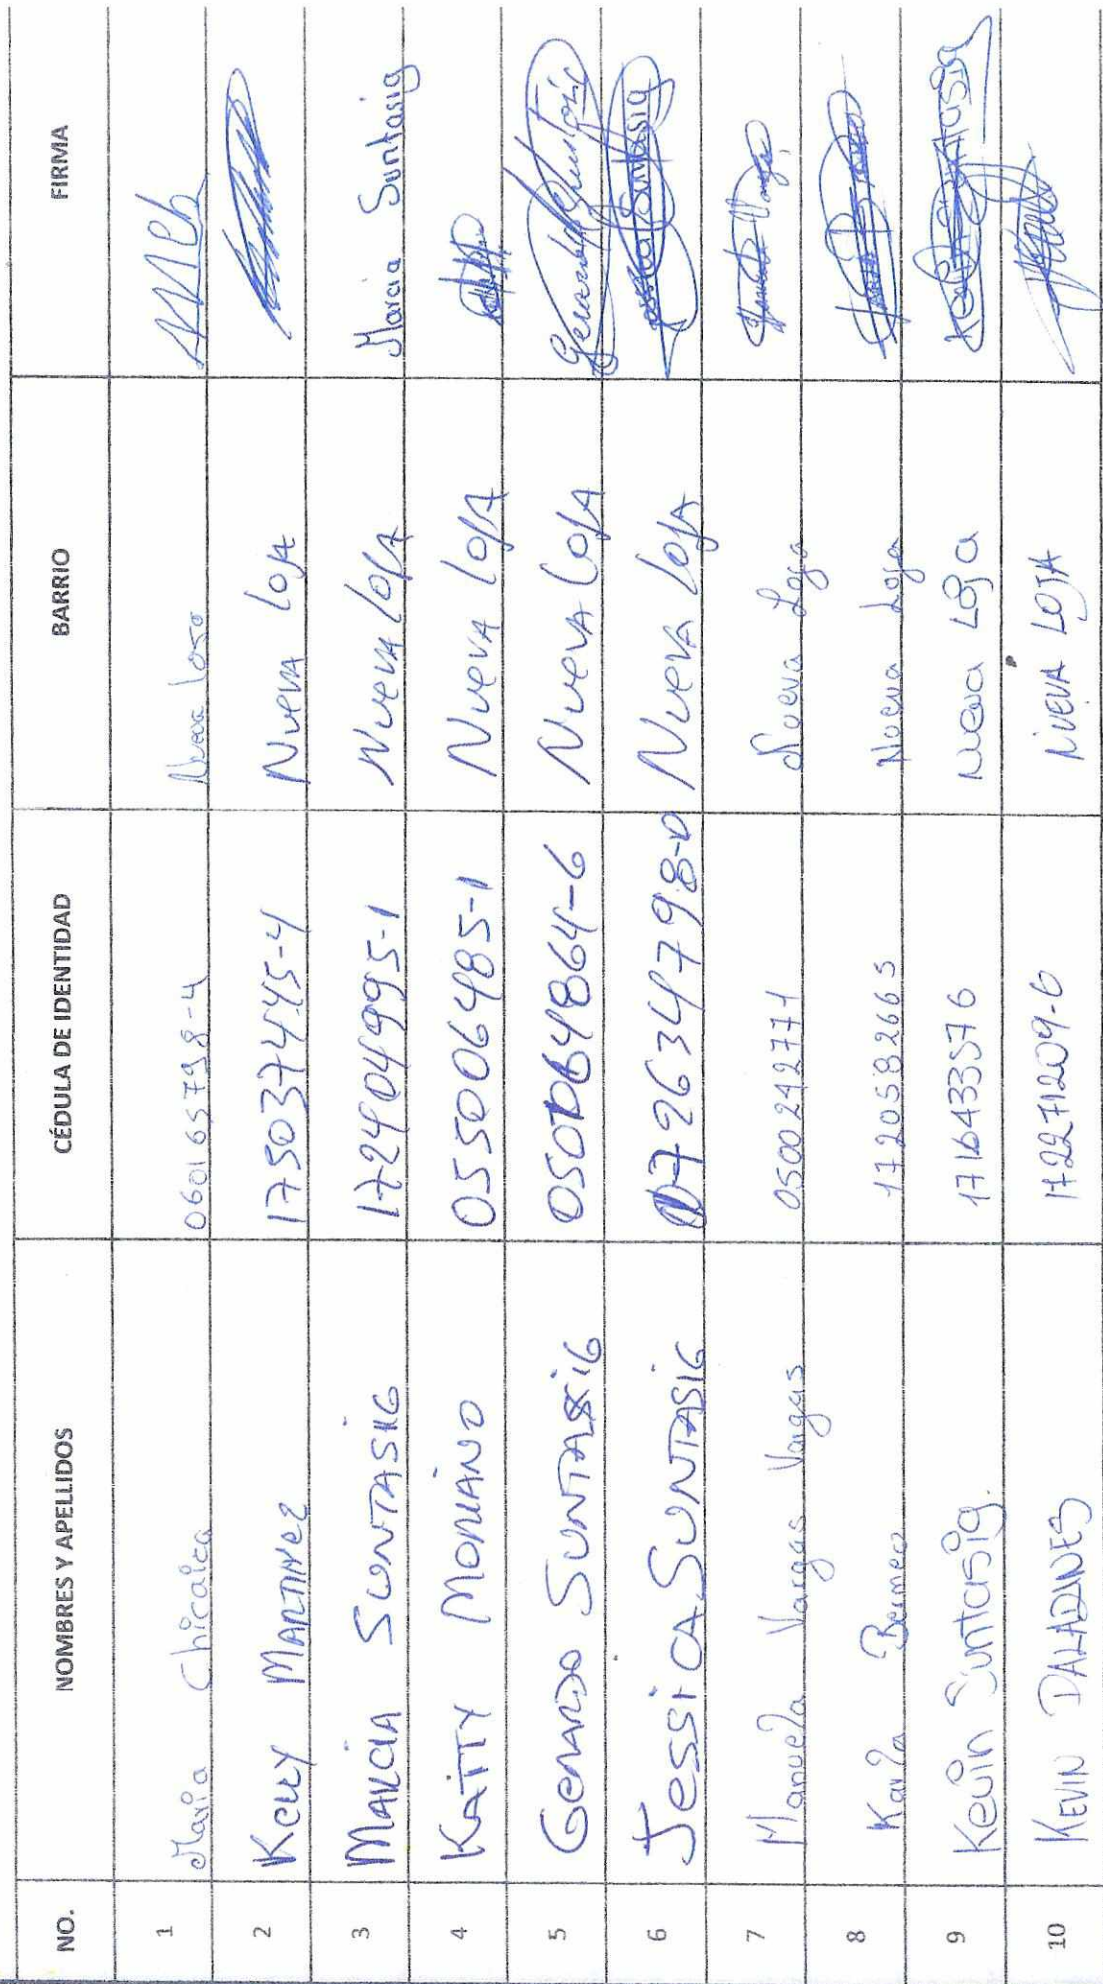 NO. NOMBRES Y APELLIDOS CÉDULA DE IDENTIDAD BARRIO FIRMA
1 Maria Chicaiza 060165798-4 Nueva Loja
2 Kelly MARTINEZ 175037445-4 Nueva Loja
3 MARCIA SUNTASIG 172404995-1 Nueva Loja Marcia Suntasig
4 KATTY MORIANO 055006485-1 Nueva Loja
5 GERARDO SUNTASIG 050064864-6 Nueva Loja
6 JESSICA SUNTASIG 172634798-0 Nueva Loja
7 Manuela Vargas Vargas 0500242771 Nueva Loja
8 Karla Bermeo 1720582665 Nueva Loja
9 Kevin Suntasig. 1716433576 Nueva Loja
10 KEVIN PALADINES 172271209-6 NUEVA LOJA